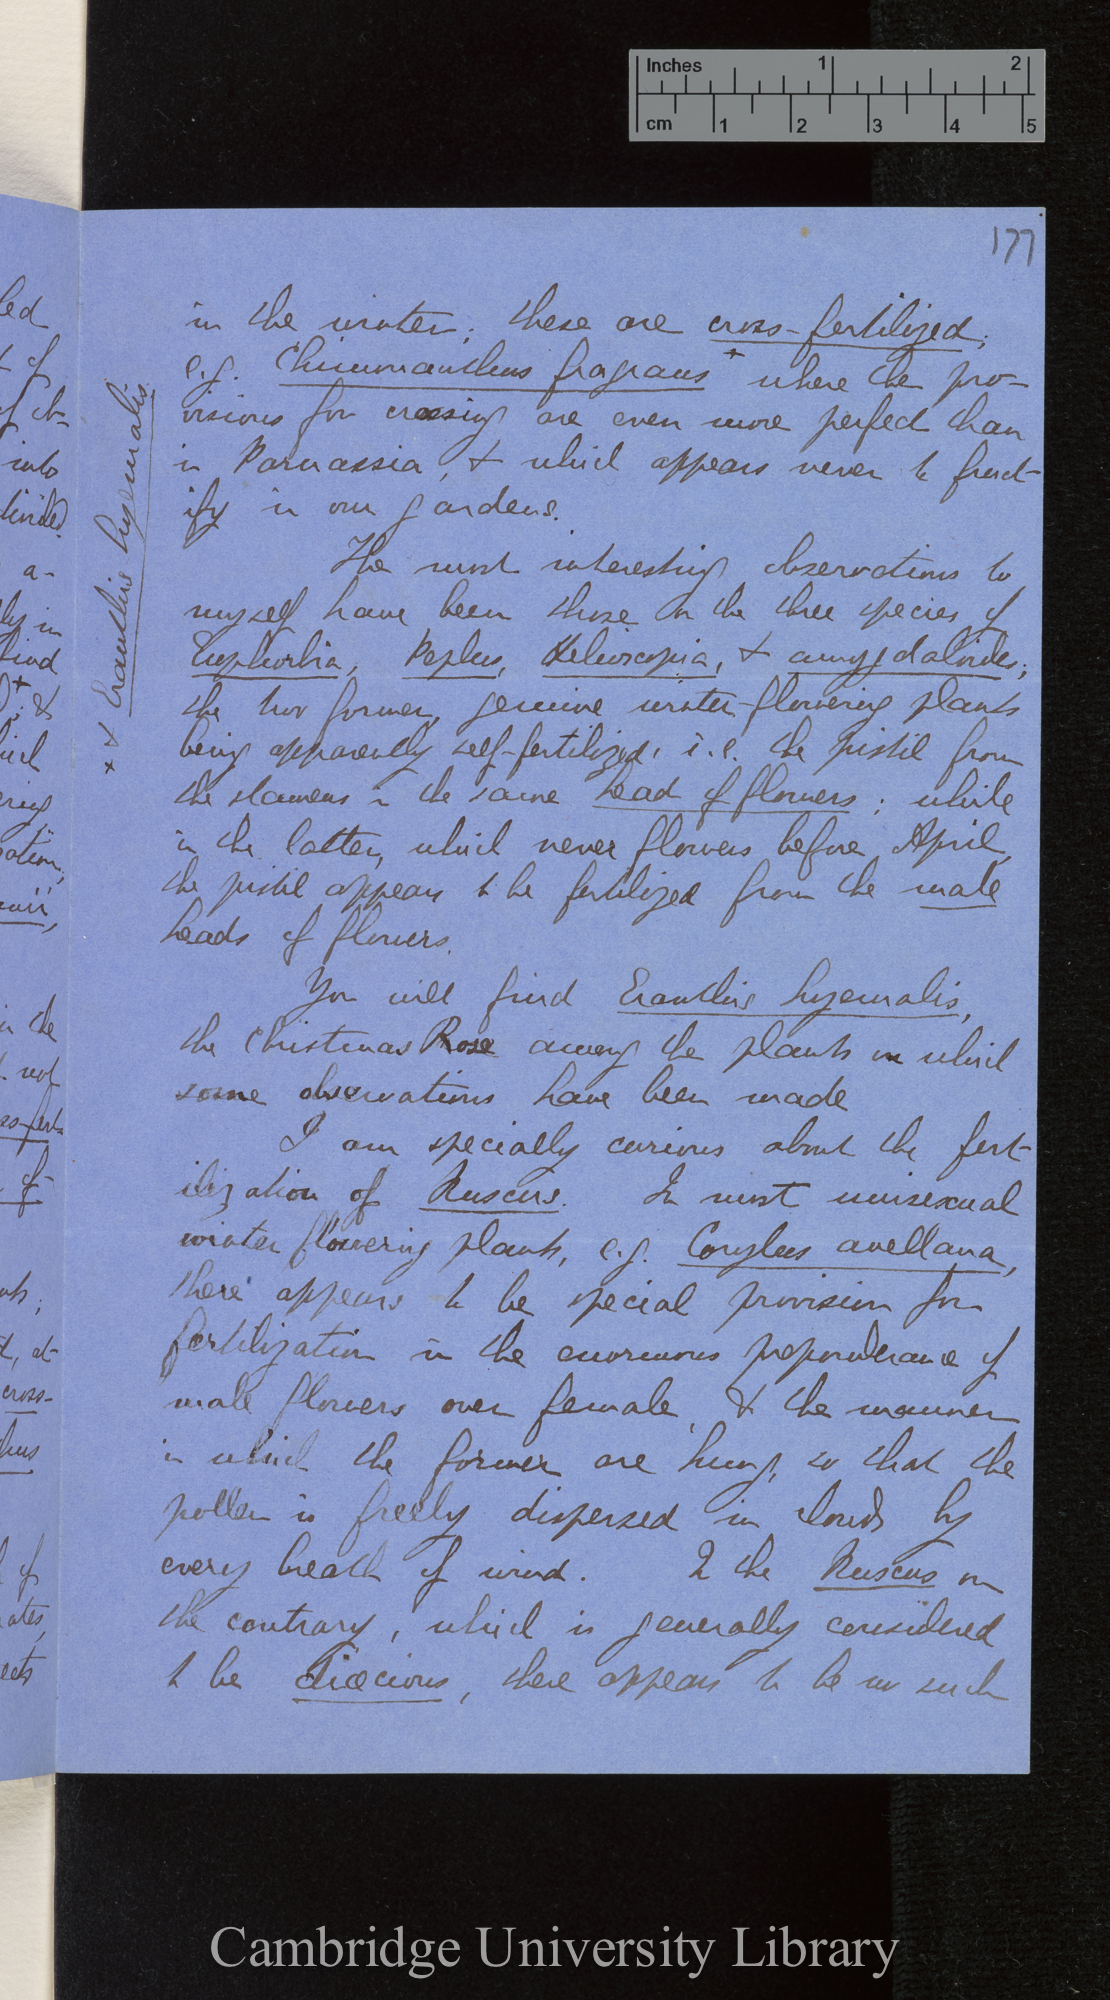 Inches 1 2
cm 1 2 3 4 5
177
in the winter; these are cross-fertilized;
e.g. Chimonanthus fragrans + where the pro-
visions for crossing are even more perfect than
in Parnassia, & which appears never to fruct-
ify in our gardens.
The most interesting observations to
myself have been those on the three species of
Euphorbia, Peplus, Helioscopia, & amygdaloides;
the two former, genuine winter-flowering plants
being apparently self-fertilized, i.e. the pistil from
the stamens in the same head of flowers; while
in the latter, which never flowers before April,
the pistil appears to be fertilized from the male
heads of flowers.
You will find Eranthis hyemalis,
the Christmas Rose among the plants on which
some observations have been made
I am specially curious about the fert-
ilization of Ruscus. In most unisexual
winter flowering plants, e.g. Corylus avellana,
there appears to be special provision for
fertilization in the enormous preponderance of
male flowers over female, & the manner
in which the former are hung, so that the
pollen is freely dispersed in clouds by
every breath of wind. In the Ruscus on
the contrary, which is generally considered
to be diœcious, there appears to be no such
+ & Eranthis hyemalis.
Cambridge University Library